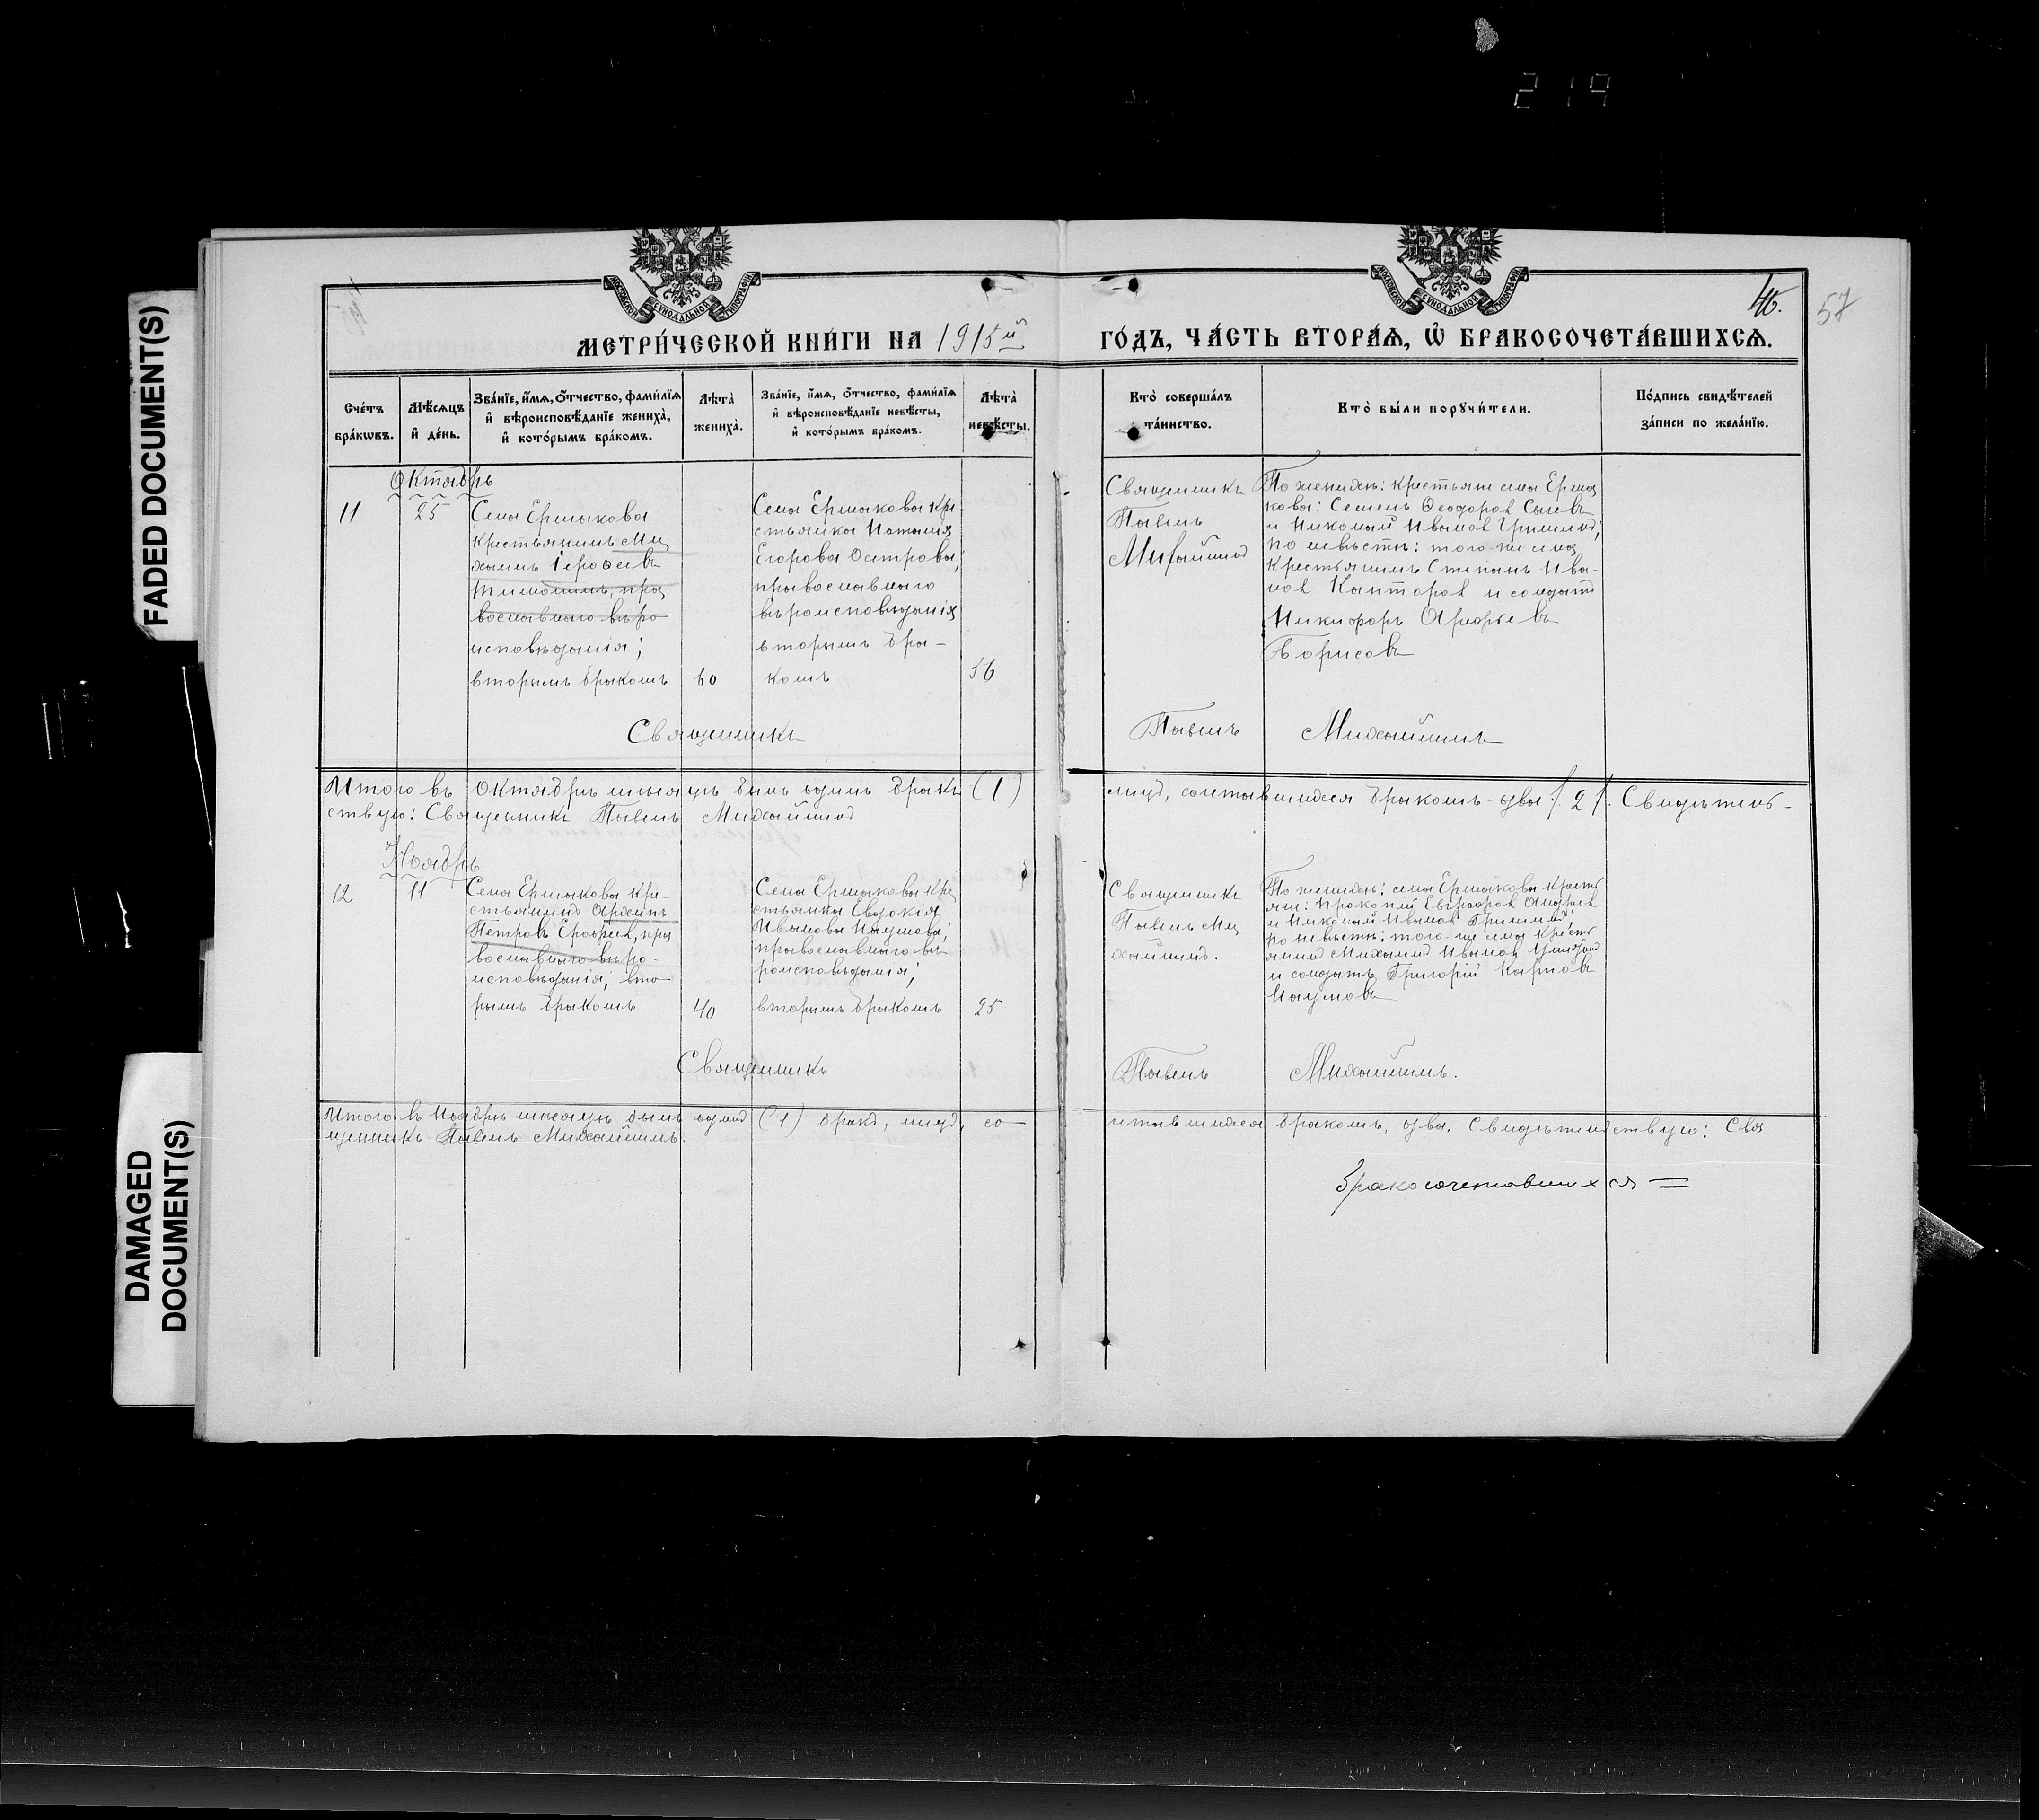 219
FADED DOCUMENT(S)
DAMAGED
DOCUMENT(S)
46.
57
МОСКОВСКОЙ СѴНОДАЛЬНОЙ ТИПОГРАФІИ
МОСКОВСКОЙ СѴНОДАЛЬНОЙ ТИПОГРАФІИ
МЕТРИ́ЧЕСКОЙ КНИ́ГИ НА 1915й
ГО́ДЪ, ЧА́СТЬ ВТОРА́Ѧ, Ѽ БРАКОСОЧЕТА́ВШИХСѦ.
Сче́тъ
бра́кѡвъ.
Мѣ́сѧцъ
и҆ де́нь.
Зва́нїе, и҆́мѧ, ѻ҆́тчество, фами́лїѧ
и҆ вѣроисповѣ́данїе жениха̀,
и҆ кото́рымъ бра́комъ.
Лѣта̀
жениха̀.
Зва́нїе, и҆́мѧ, ѻ҆́тчество, фами́лїѧ
и҆ вѣроисповѣ́данїе невѣ́сты,
и҆ кото́рымъ бра́комъ.
Лѣта̀
невѣ́сты.
Кто̀ соверша́лъ
та́инство.
Кто̀ бы́ли порꙋчи́тели.
По́дпись свидѣ́телей
за́писи по жела́нїю.
Октябрь
11
25
Села Ермакова
крестьянинъ Ми
хаилъ Іероѳеевъ
пра
вославнаго вѣро
исповѣданія;
вторымъ бракомъ
60
Села Ермакова кре
стьянка Наталия
Егорова Острова,
православнаго
вѣроисповѣданія
вторымъ бра-
комъ
56
Священникъ
Павелъ
Михайлинъ
По женихѣ: крестьяне села Ерма
кова: Семенъ Ѳеодоровъ Сычевъ
и Николай Ивановъ Гришинъ;
по невѣстѣ: того-же села
крестьянинъ Степанъ Ива-
новъ Канторовъ и солдатъ
Никифоръ Андреевъ
Борисовъ
Священникъ Павелъ Михайлинъ
Итого въ Октябрѣ мѣсяцѣ былъ одинъ бракъ (1) лицъ, сочетавшихся бракомъ - два /. 2 /. Свидѣтель-
ствую: Священникъ Павелъ Михайлинъ
Ноябрь
12
11
Села Ермакова кре-
стьянинъ Архипъ
Петровъ Ерофеевъ, пра
вославнаго вѣро-
исповѣданія; вто
рымъ бракомъ
40
Села Ермакова кре
стьянка Евдокія
Иванова Наумова;
православнаго вѣ-
роисповѣданія;
вторымъ бракомъ
25
Священникъ
Павелъ Ми
хайлинъ.
По женихѣ: села Ермакова крестъ
яне: Прокопій Евграфовъ Андреевъ
и Николай Ивановъ Гришинъ;
по невѣстѣ: того-же села крестъ
янинъ Михаилъ Ивановъ
и солдатъ Григорій Карповъ
Наумовъ
Священникъ Павелъ Михайлинъ.
Итого въ Ноябрѣ мѣсяцѣ былъ одинъ (1) бракъ, лицъ, со- четавшихся бракомъ, два. Свидѣтельствую: Свя
щенникъ Павелъ Михайлинъ.
Бракосочетавшихся =